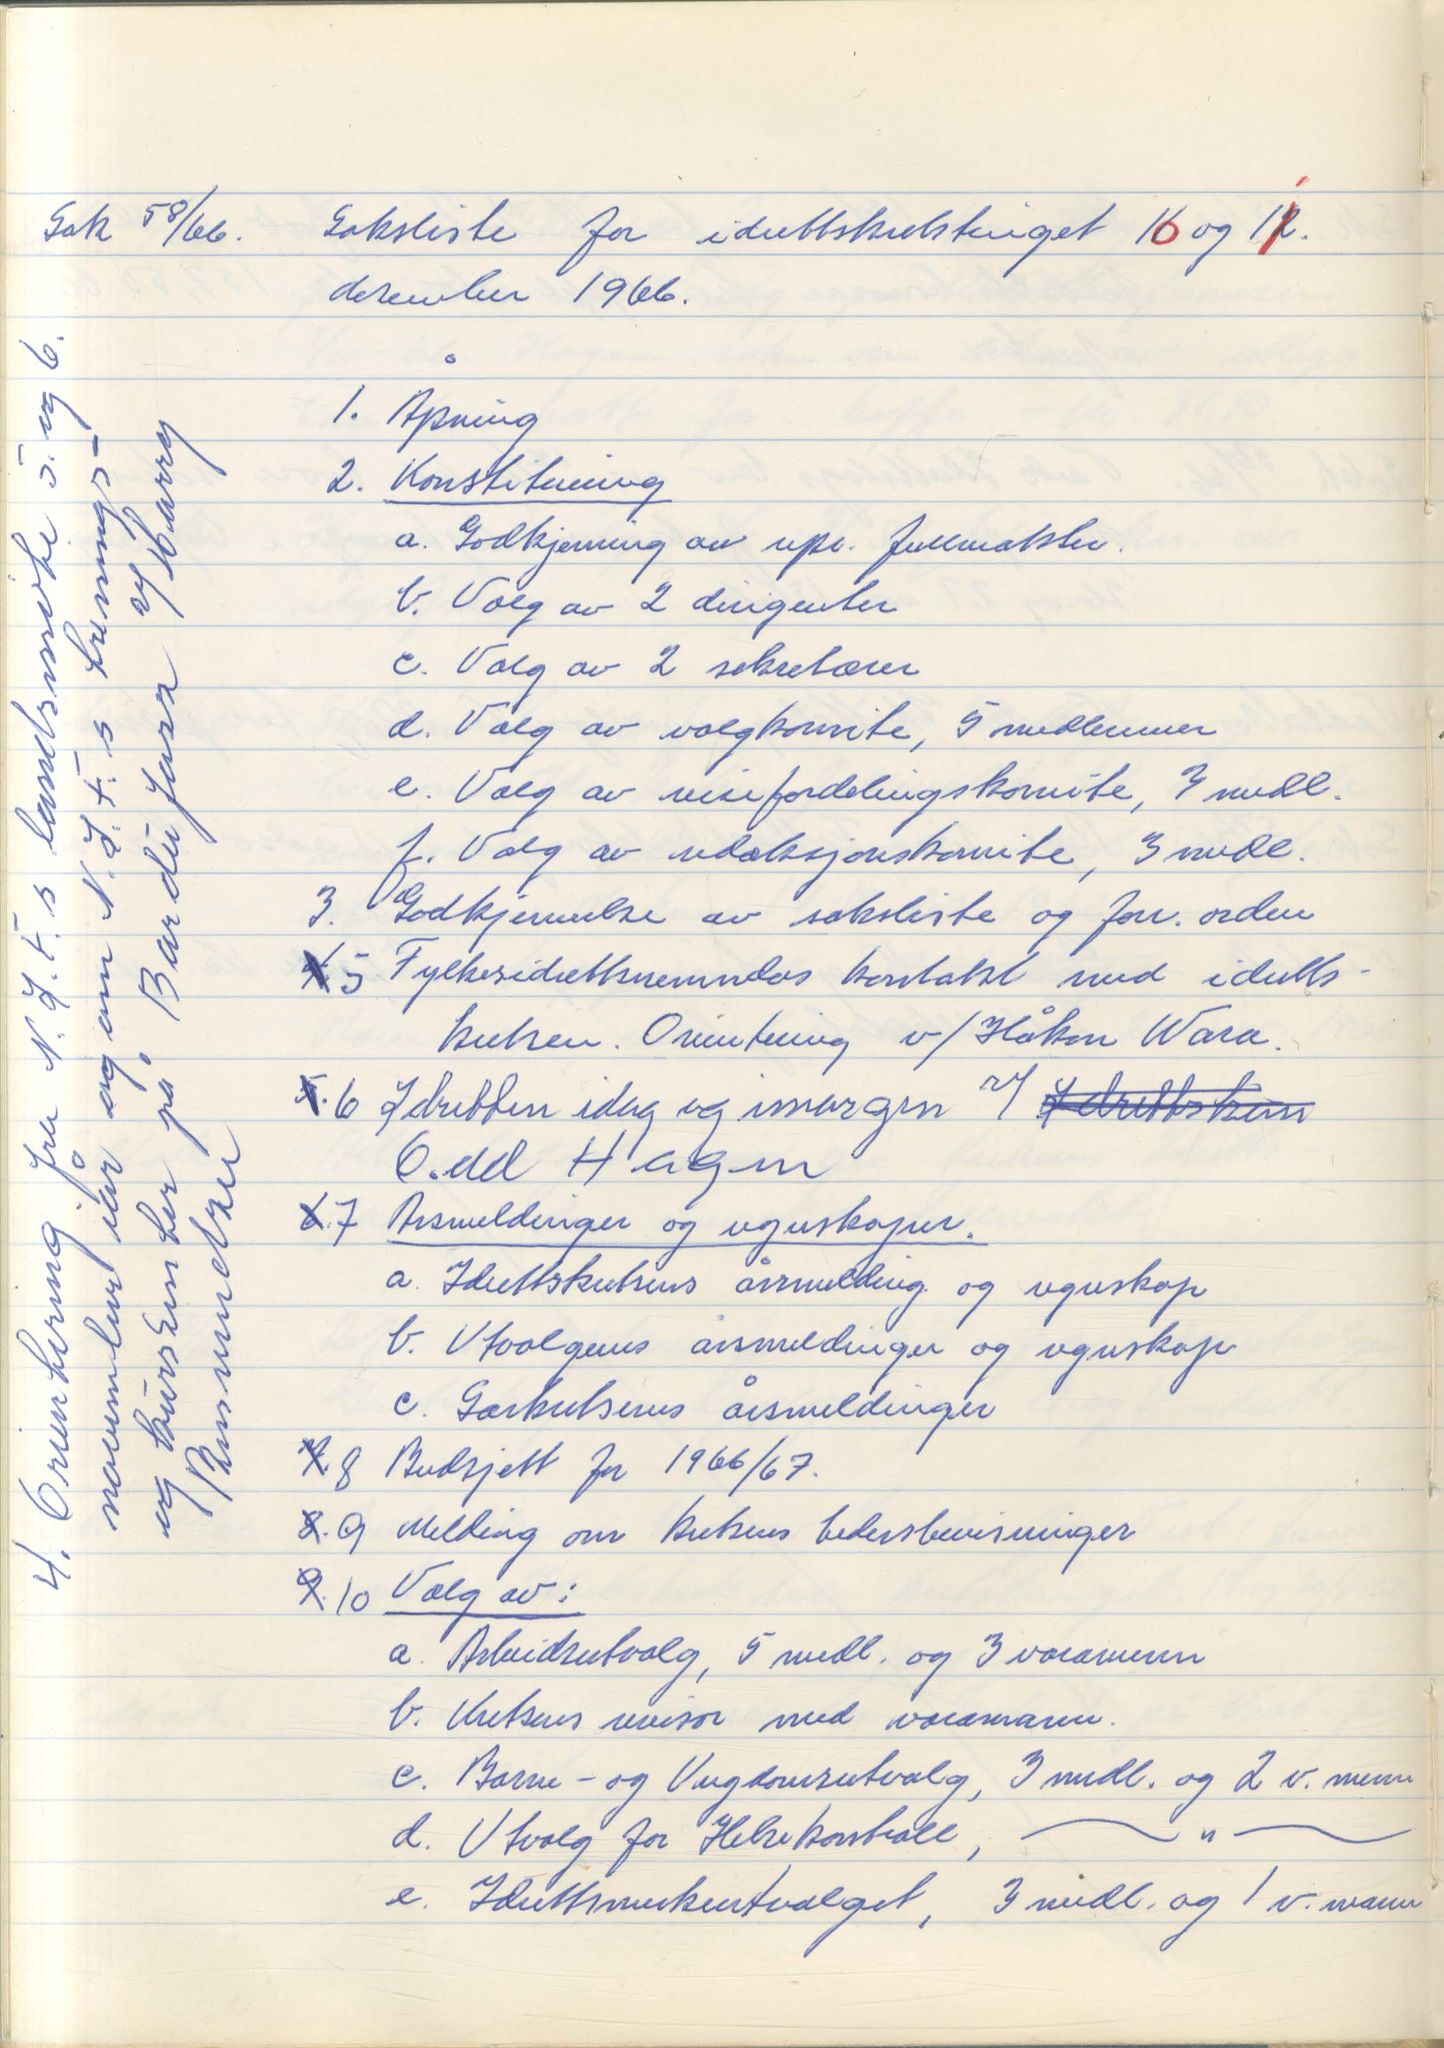 Sak 58/66. Saksliste for idrettskretstinget 10 og 11.
desember 1966.
1. Åpning
2. Konstituering
a. Godkjenning av repr. fullmakter.
b. Valg av 2 dirigenter
c. Valg av 2 sekretærer
d. Valg av valgkomite, 5 medlemmer
e. Valg av reisefordelingskomite, 3 medl.
f. Valg av redaksjonskomite, 3 medl.
3. Godkjennelse av saksliste og forr. orden
5 Fylkesidrettsnemndas kontakt med idretts-
kretsen. Orientering v/ Håkon Wara.
6 Idretten idag og imorgen v/ Idrettskem
Odd Hagen
7 Årsmeldinger og regnskaper.
a. Idrettskretsens årsmelding og regnskap
b. Utvalgenes årsmeldinger og regnskap
c. Særkretsenes årsmeldinger
8 Budsjett for 1966/67.
9 Melding om kretsens hedersbevisninger
10 Valg av:
a. Arbeidsutvalg, 5 medl. og 3 varamenn
b. Kretsens revisor med varamann.
c. Barne- og Ungdomsutvalg, 3 medl. og 2 v. menn
d. Utvalg for Helsekontroll, — " —
e. Idrettsmerkeutvalget, 3 medl. og 1 v. mann
4. Orientering fra N.I.F.s landsmøte 5. og 6.
november iår og om N.I.F.s trenings-
og kurssenter på Bardu Jara v/ Harry
Simmelsen